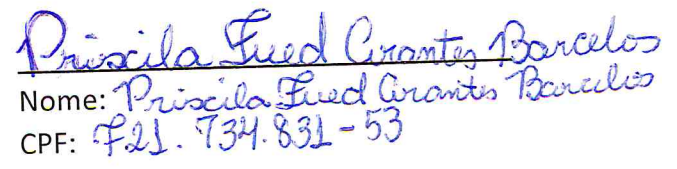 Priscila Fued Arantes Barcelos
Nome: Priscila Fued Arantes Barcelos
CPF: 721.734.831-53